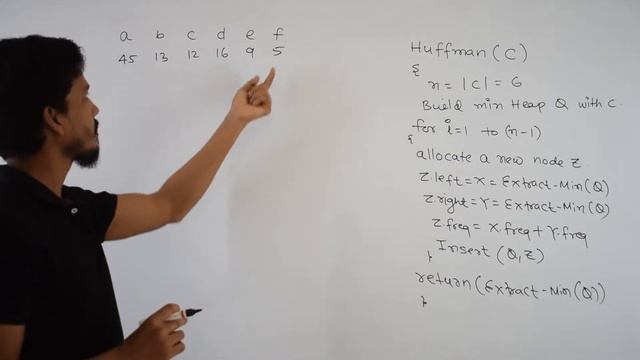 a b c d e f
45 13 12 16 9 5
Huffman (C)
{
n = |C| = 6
Build min Heap Q with C.
for i=1 to (n-1)
{
allocate a new node Z.
Z.left = X = Extract-Min(Q)
Z.right = Y = Extract-Min(Q)
Z.freq = X.freq + Y.freq
Insert (Q,Z)
}
return (Extract-Min(Q))
}